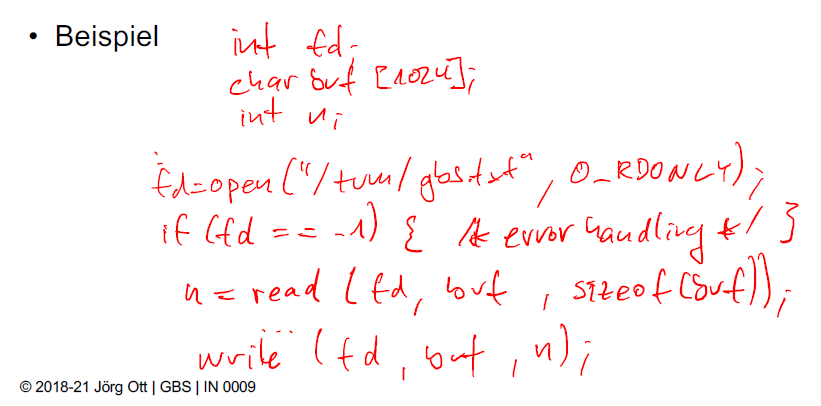 • Beispiel
int fd;
char buf [1024];
int n;
fd=open("/tum/gbs.txt", O_RDONLY);
if (fd == -1) { /* error handling */ }
n = read (fd, buf, sizeof(buf));
...
write (fd, buf, n);
© 2018-21 Jörg Ott | GBS | IN 0009